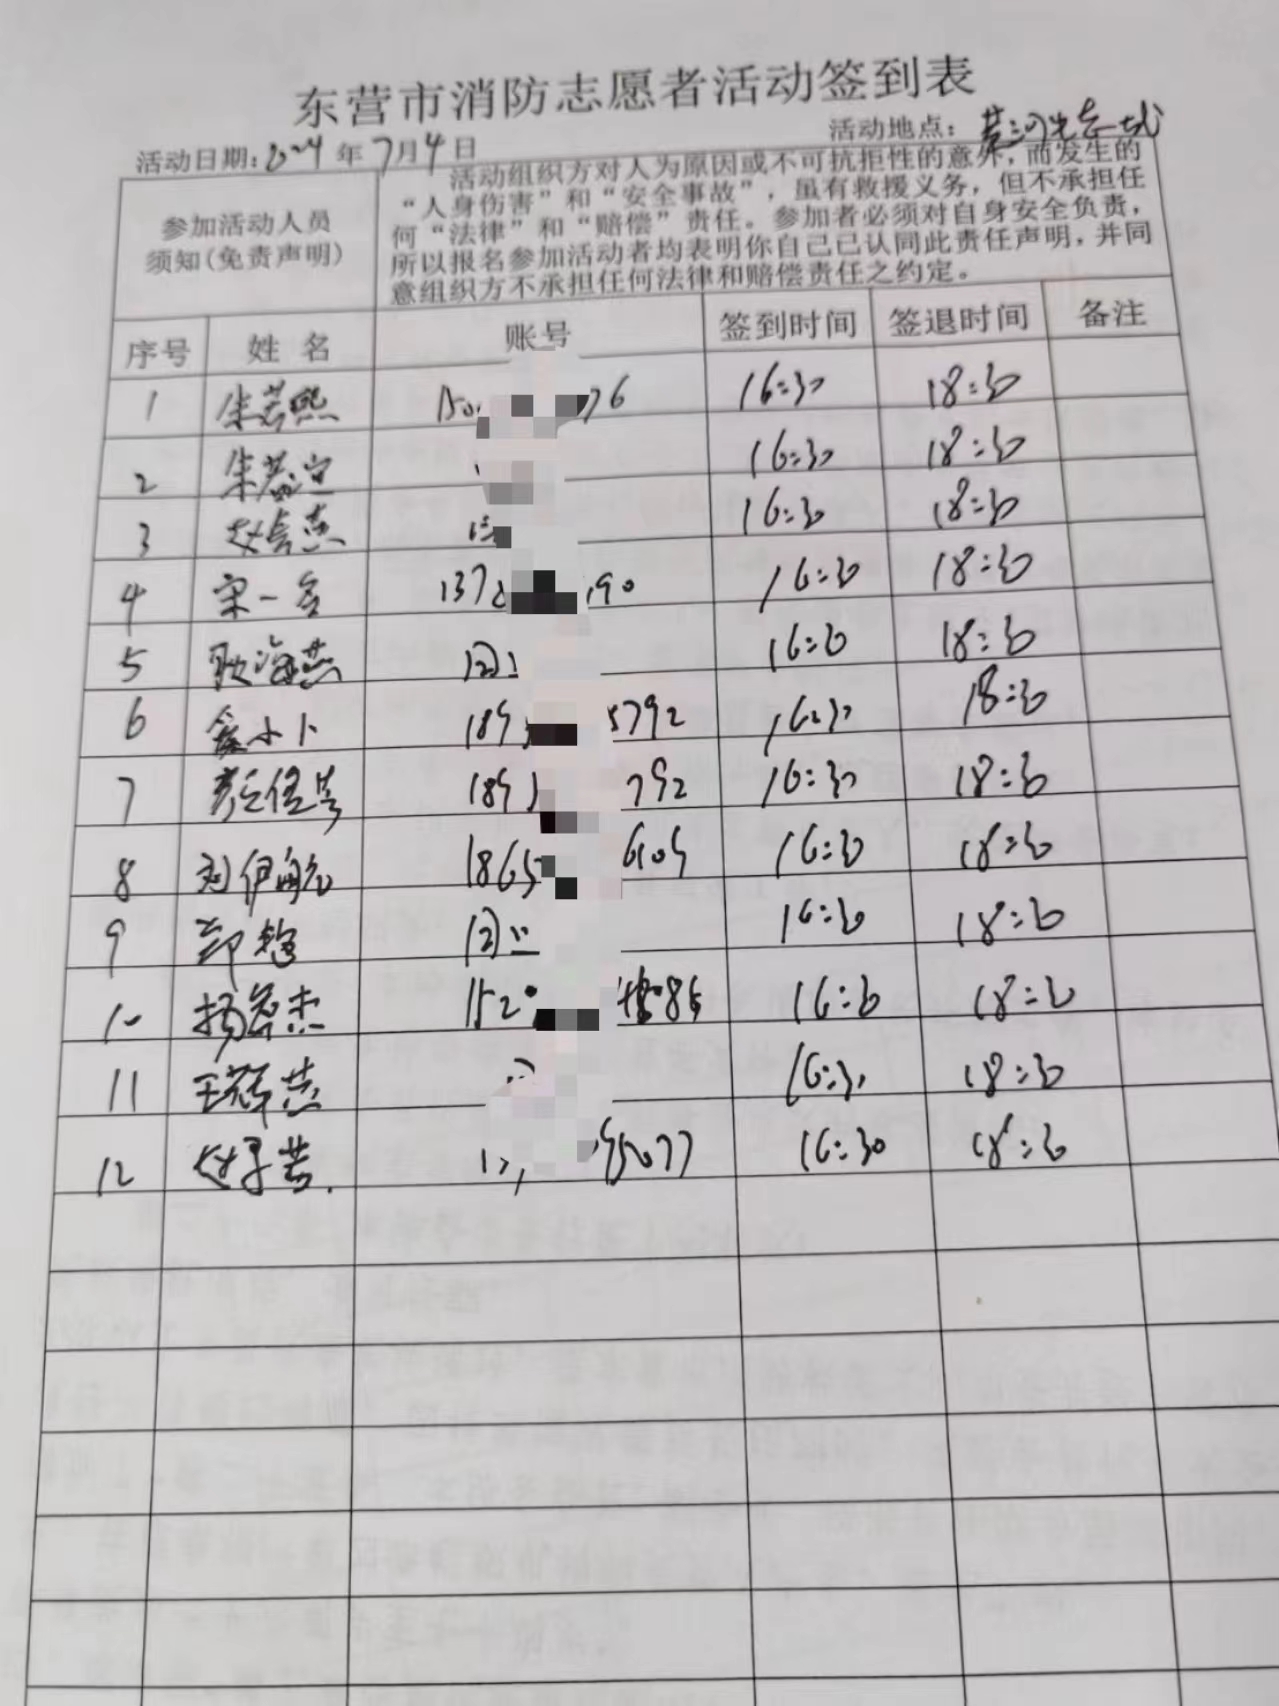 东营市消防志愿者活动签到表
活动日期：2024年7月4日 活动地点：
参加活动人员
须知（免责声明）
活动组织方对人为原因或不可抗拒性的意外，而发生的
“人身伤害”和“安全事故”，虽有救援义务，但不承担任
何“法律”和“赔偿”责任。参加者必须对自身安全负责，
所以报名参加活动者均表明你自己已认同此责任声明，并同
意组织方不承担任何法律和赔偿责任之约定。
序号 姓名 账号 签到时间 签退时间 备注
1 朱若熙 76 16:30 18:30
2 16:30 18:30
3 16:30 18:30
4 宋一 137 190 16:30 18:30
5 耿海燕 16:30 18:30
6 鑫小卜 189 5792 16:30 18:30
7 189 792 16:30 18:30
8 刘伊航 1865 6105 16:30 18:30
9 16:30 18:30
10 杨 杰 152 16:30 18:30
11 王 燕 16:30 18:30
12 95077 16:30 18:30